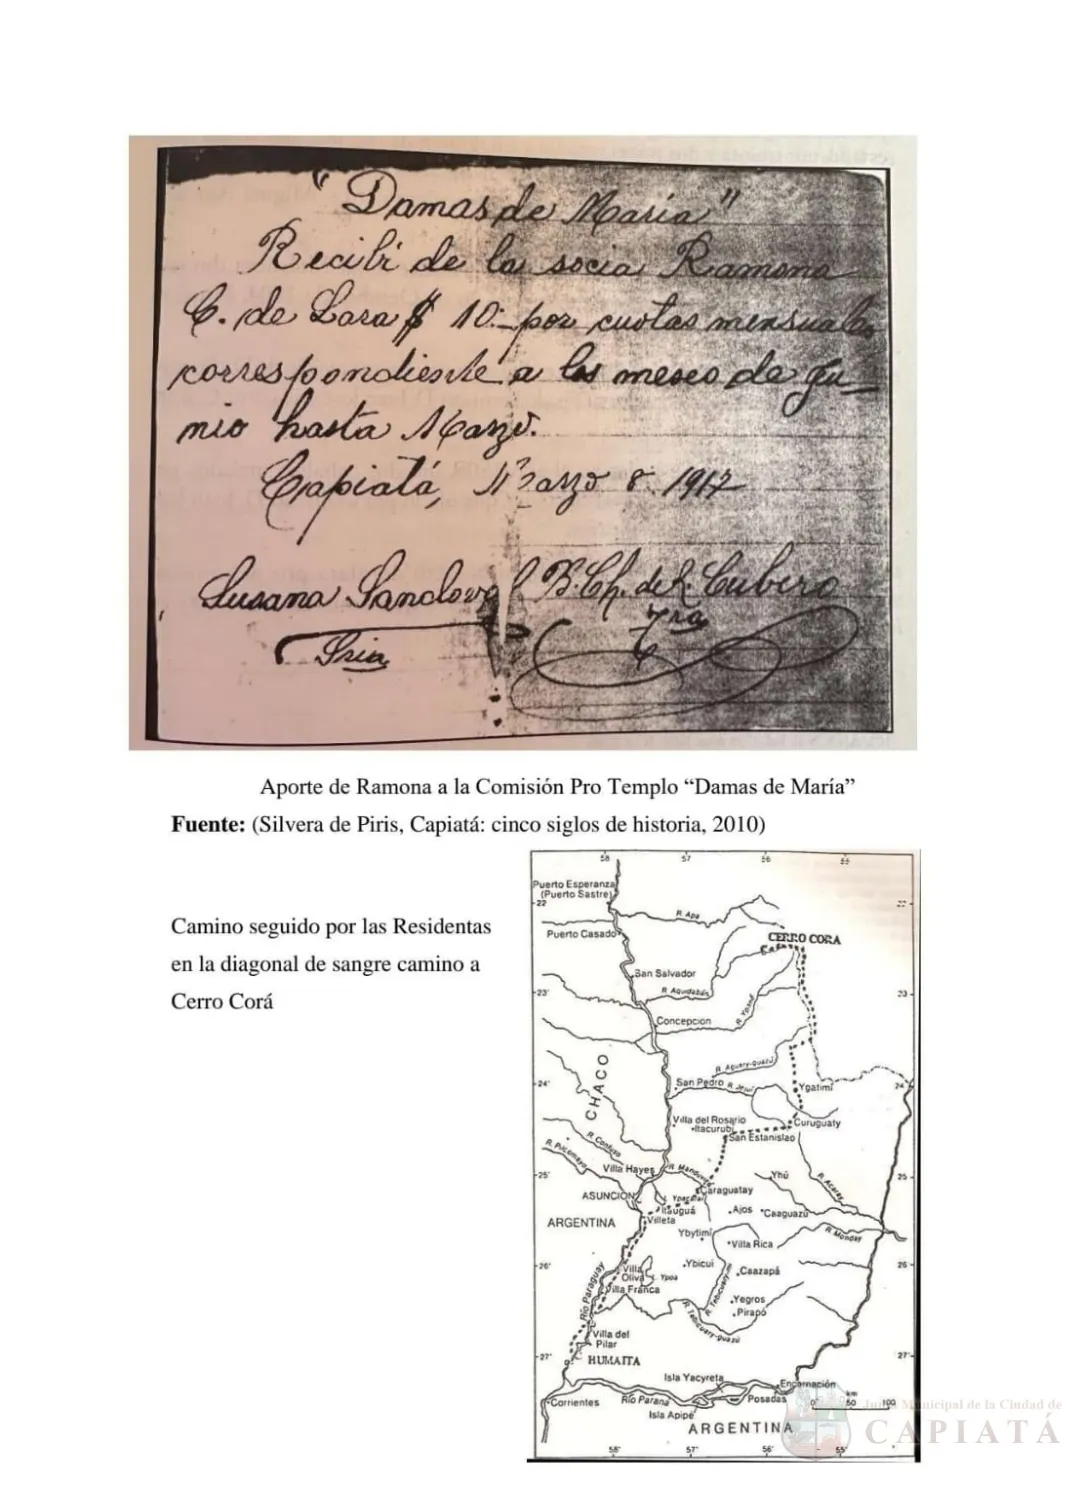 "Damas de María"
Recibí de la socia Ramona
C. de Lara $ 10.- por cuotas mensuales
correspondiente a los meses de Ju
nio hasta Marzo.
Capiatá, Marzo 8. 1917
Susana Sandoval B. Ch. de R. Cubero
Sria Tra
Aporte de Ramona a la Comisión Pro Templo “Damas de María”
Fuente: (Silvera de Piris, Capiatá: cinco siglos de historia, 2010)
Camino seguido por las Residentas
en la diagonal de sangre camino a
Cerro Corá
58 57 56 55
Puerto Esperanza
(Puerto Sastre)
22 22
R. Apa
Puerto Casado
CERRO CORA
San Salvador
R. Aquidabán
23 23
R. Ypané
Concepcion
R. Aguary-guazú
CHACO
24 San Pedro R. Jejuí Ygatimí 24
Villa del Rosario
Itacurubí
Curuguaty
San Estanislao
R. Confuso
R. Pilcomayo
Villa Hayes R. Manduvirá
25 Yhú R. Acaray 25
ASUNCION Ypacaraí Caraguatay
Itauguá Ajos Caaguazu
ARGENTINA Villeta
Ybytimí R. Monday
Villa Rica
26 Villa Oliva Ypoa Ybicui Caazapá 26
Villa Franca
Río Paraguay
R. Tebicuary-mí
Yegros
Pirapó
R. Tebicuary-guazú
Villa del
Pilar
27 HUMAITA 27
Isla Yacyreta
Encarnación
Corrientes Río Parana Posadas
km
0 50 100
Isla Apipé
ARGENTINA
58 57 56 55
Junta Municipal de la Ciudad de
CAPIATÁ